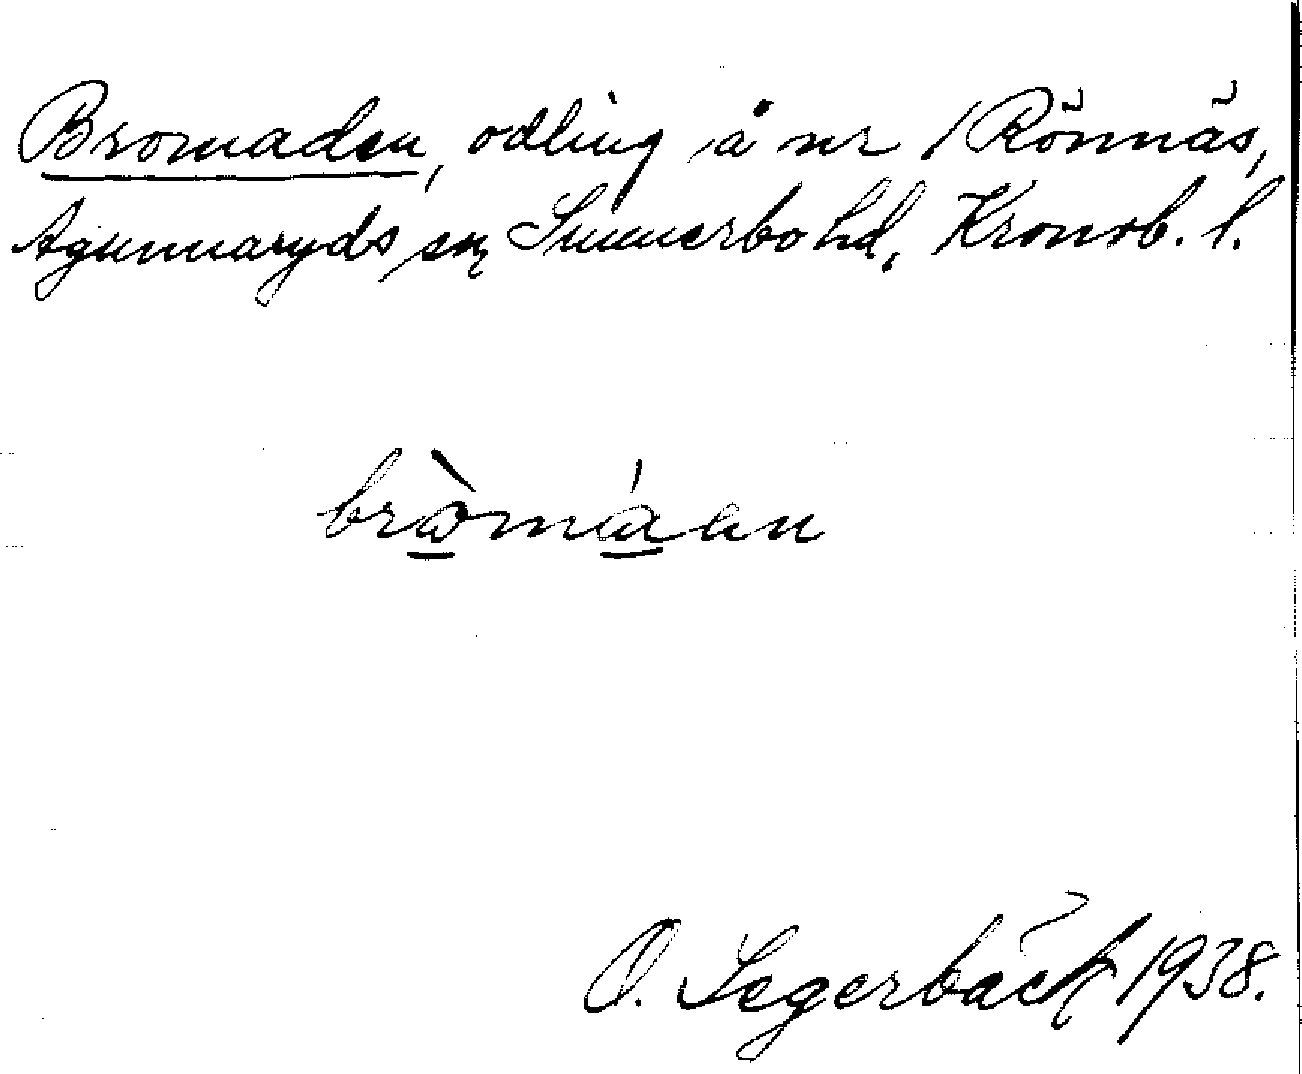 Bromaden, odling å nr 1 Rönnäs,
Agunnaryds sn, Sunnerbo hd, Kronob. l.
bròmáen
O. Segerbäck 1938.